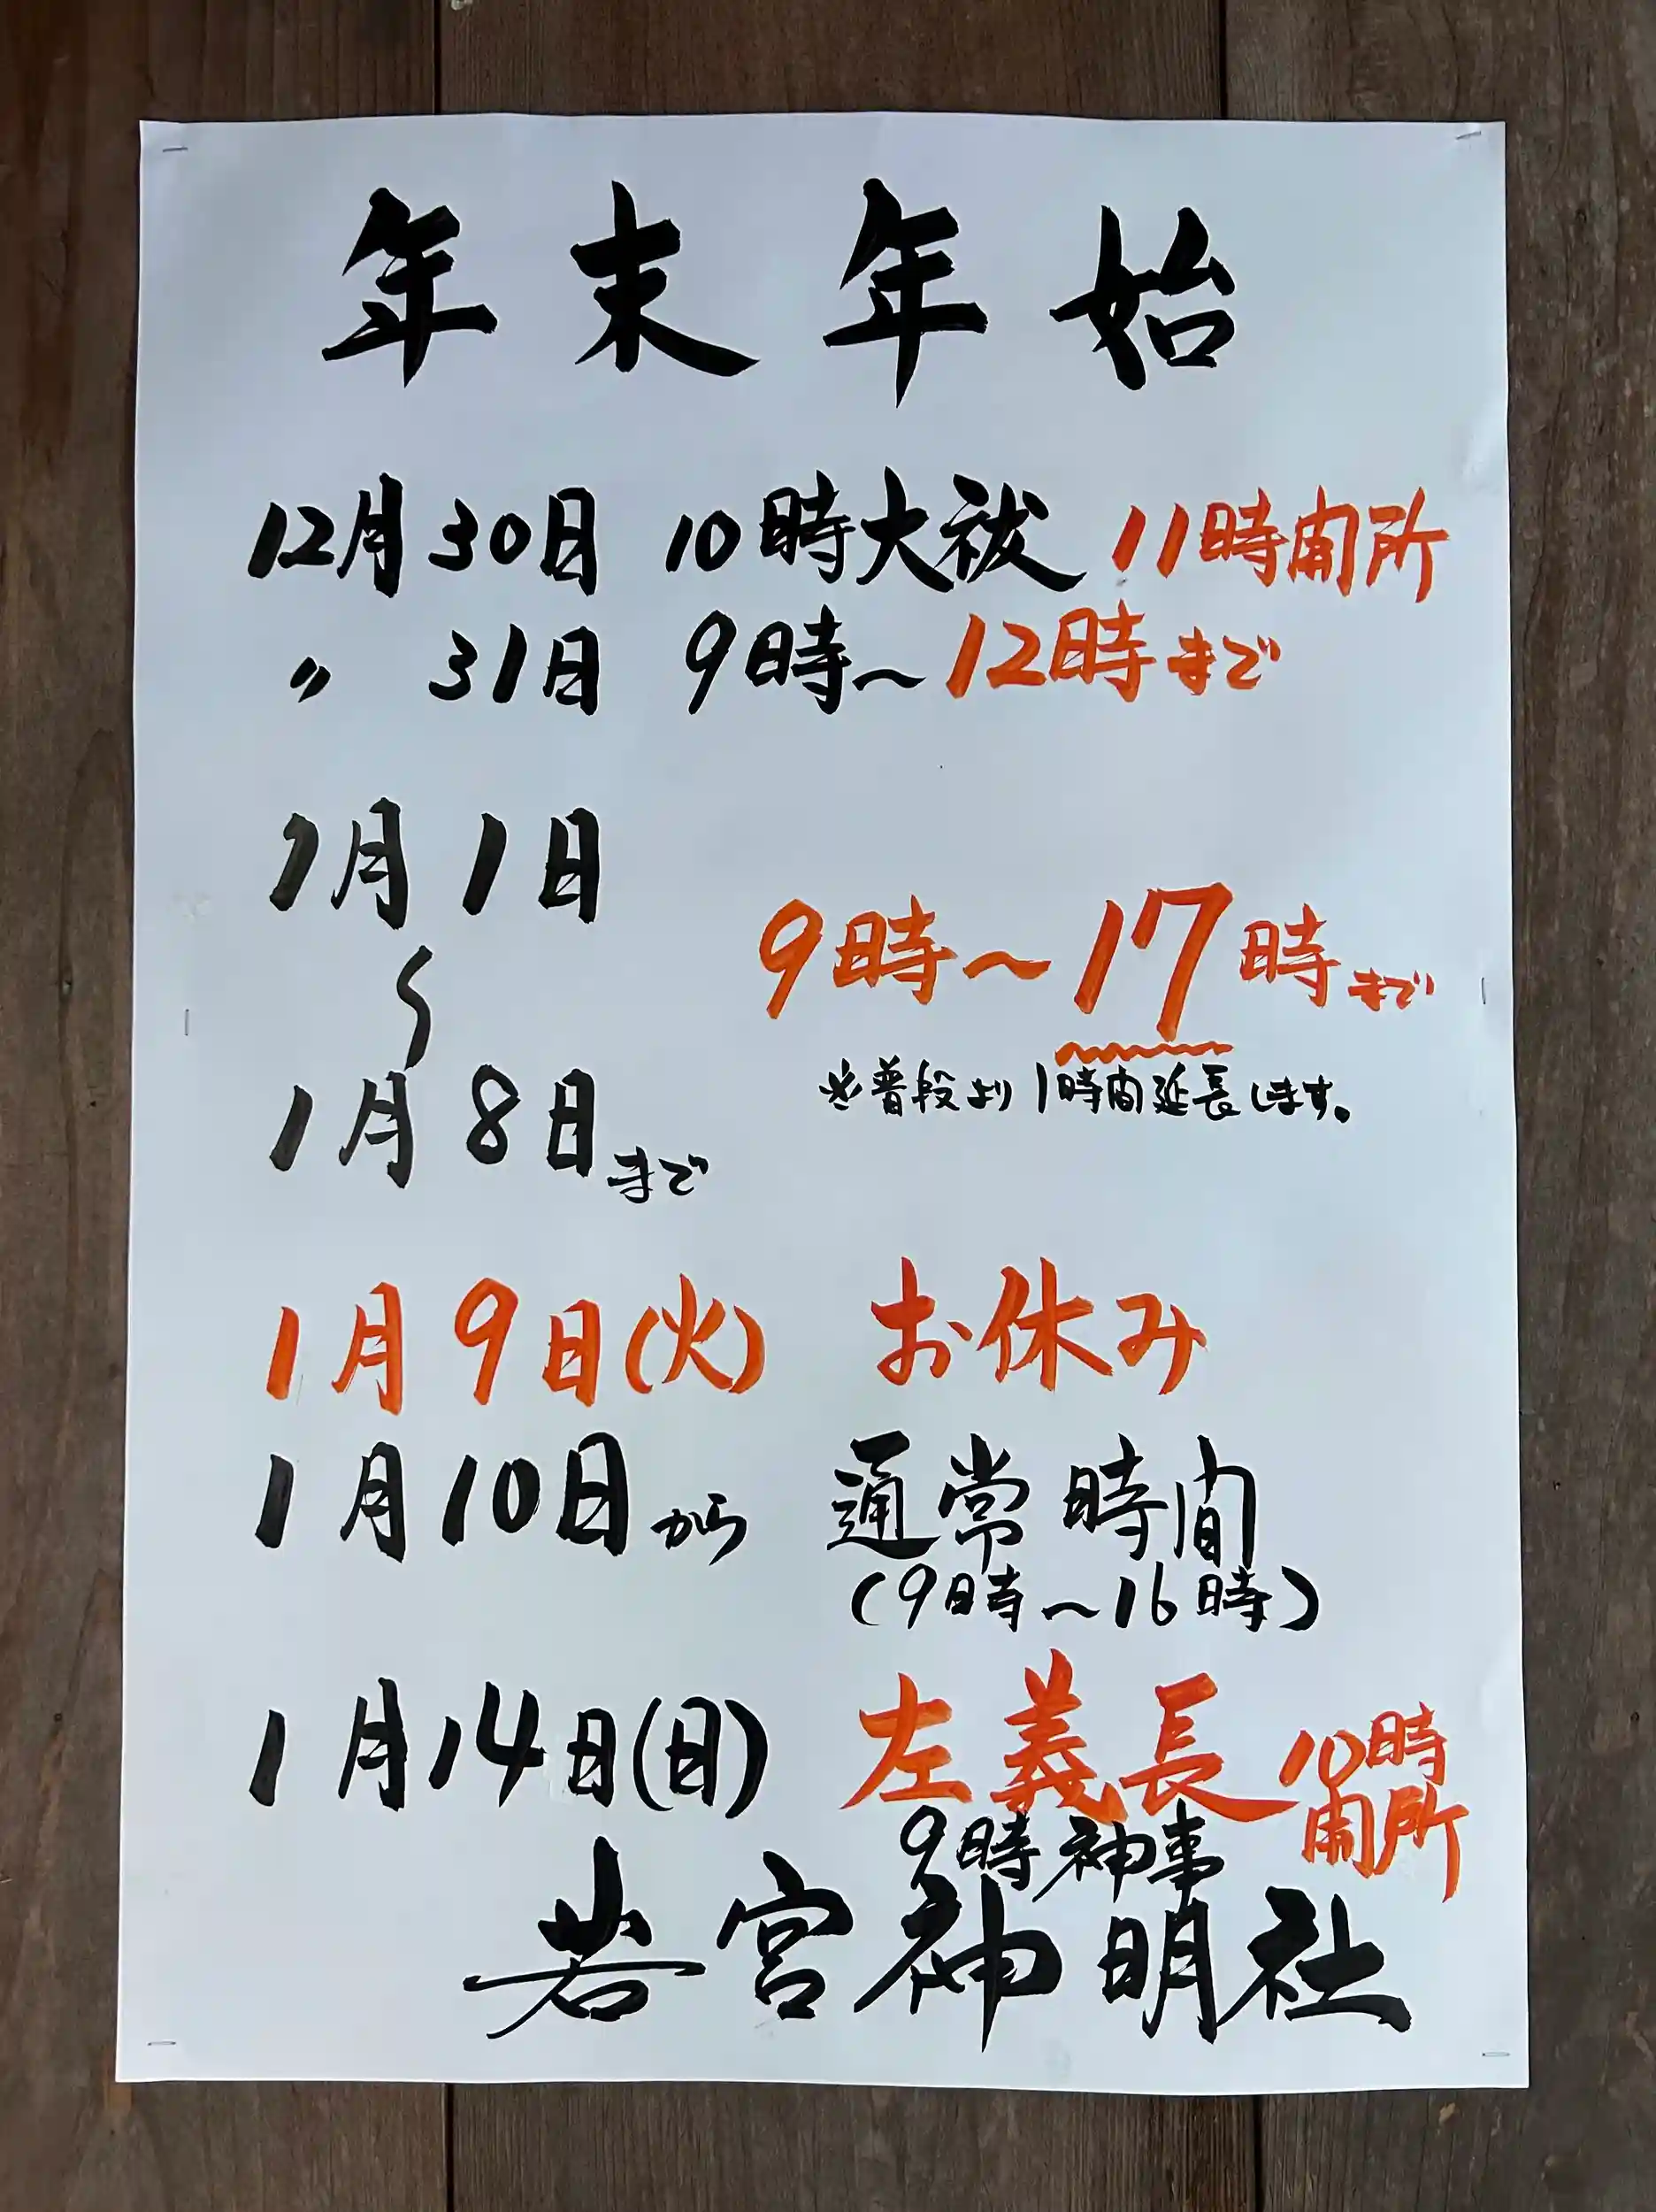 年末年始
12月30日 10時大祓 11時開所
〃 31日 9時〜12時まで
1月1日
〜
9時〜17時まで
※普段より1時間延長します。
1月8日まで
1月9日(火) お休み
1月10日から 通常時間
(9時〜16時)
1月14日(日) 左義長 10時
開所
9時神事
若宮神明社